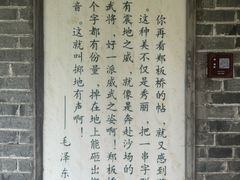 你再看郑板桥的帖，就又感到
。这种美不仅是秀丽，把一串字
有震地之威，就像是奔赴沙场的
武将，好一派威武之姿啊！郑板
个字都有份量，掉在地上能砸出
音。这就叫掷地有声啊！
——毛泽东